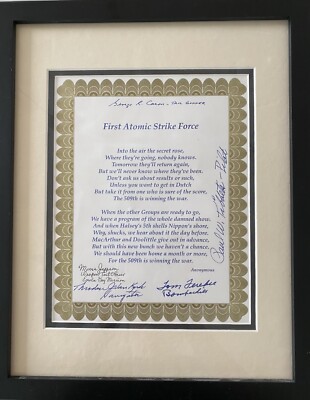 George R. Caron - tail gunner
First Atomic Strike Force
Into the air the secret rose,
Where they're going, nobody knows.
Tomorrow they'll return again,
But we'll never know where they've been.
Don't ask us about results or such,
Unless you want to get in Dutch
But take it from one who is sure of the score,
The 509th is winning the war.
When the other Groups are ready to go,
We have a program of the whole damned show.
And when Halsey's 5th shells Nippon's shore,
Why, shucks, we hear about it the day before.
MacArthur and Doolittle give and in advance,
But with this new bunch we haven't a chance.
We should have been home a month or more,
For the 509th is winning the war.
Anonymous
Paul W. Tibbets - Pilot
Morris Jeppson
Weapon Test Officer
Little Boy Mission
Theodore J. Van Kirk
Navigator
Tom Ferebee
Bombardier